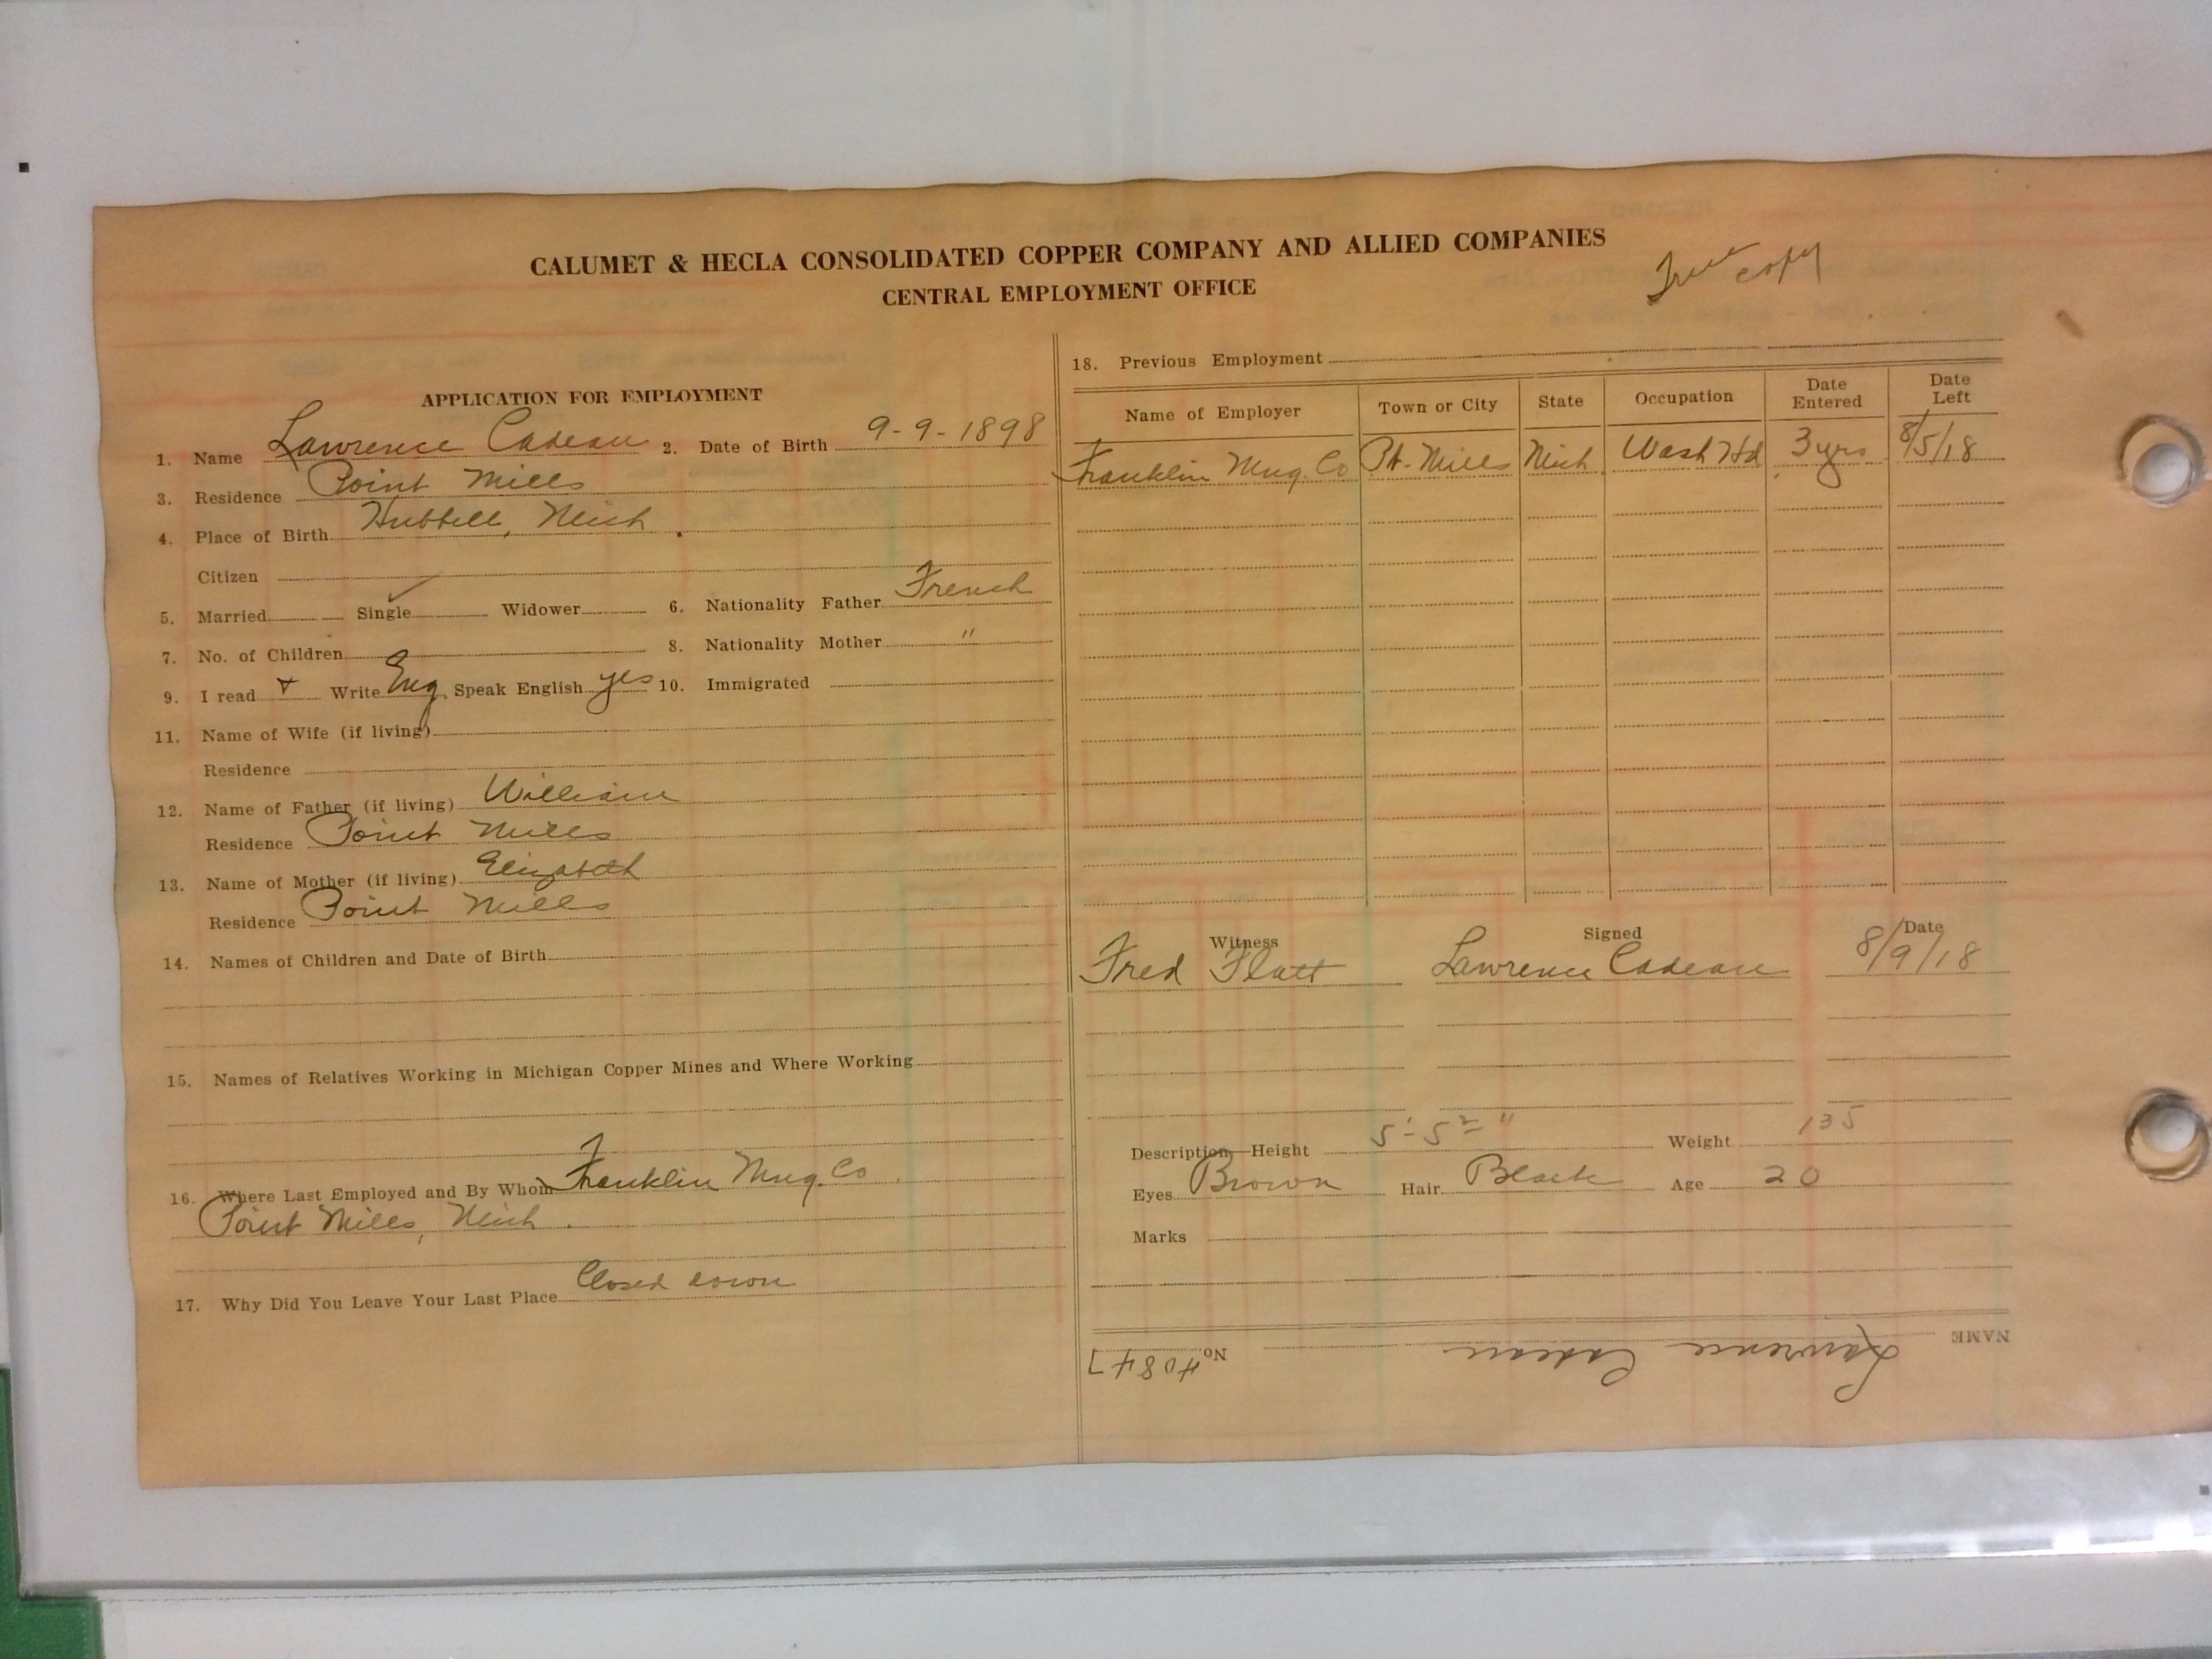 CALUMET & HECLA CONSOLIDATED COPPER COMPANY AND ALLIED COMPANIES
CENTRAL EMPLOYMENT OFFICE
True copy
APPLICATION FOR EMPLOYMENT
1. Name Lawrence Cadeau 2. Date of Birth 9-9-1898
3. Residence Point Mills
4. Place of Birth Hubbell, Mich.
Citizen
5. Married Single ✓ Widower 6. Nationality Father French
7. No. of Children 8. Nationality Mother "
9. I read + Write Eng. Speak English yes 10. Immigrated
11. Name of Wife (if living)
Residence
12. Name of Father (if living) William
Residence Point Mills
13. Name of Mother (if living) Elizabeth
Residence Point Mills
14. Names of Children and Date of Birth
15. Names of Relatives Working in Michigan Copper Mines and Where Working
16. Where Last Employed and By Whom Franklin Mng. Co.
Point Mills, Mich.
17. Why Did You Leave Your Last Place Closed down
18. Previous Employment
Name of Employer Town or City State Occupation Date Entered Date Left
Franklin Mng. Co Pt. Mills Mich. Wash Hd 3 yrs. 8/5/18
Witness Signed Date
Fred Flatt Lawrence Cadeau 8/9/18
Description—Height 5'-5 2" Weight 135
Eyes Brown Hair Black Age 20
Marks
NAME Lawrence Cadeau No. 40847